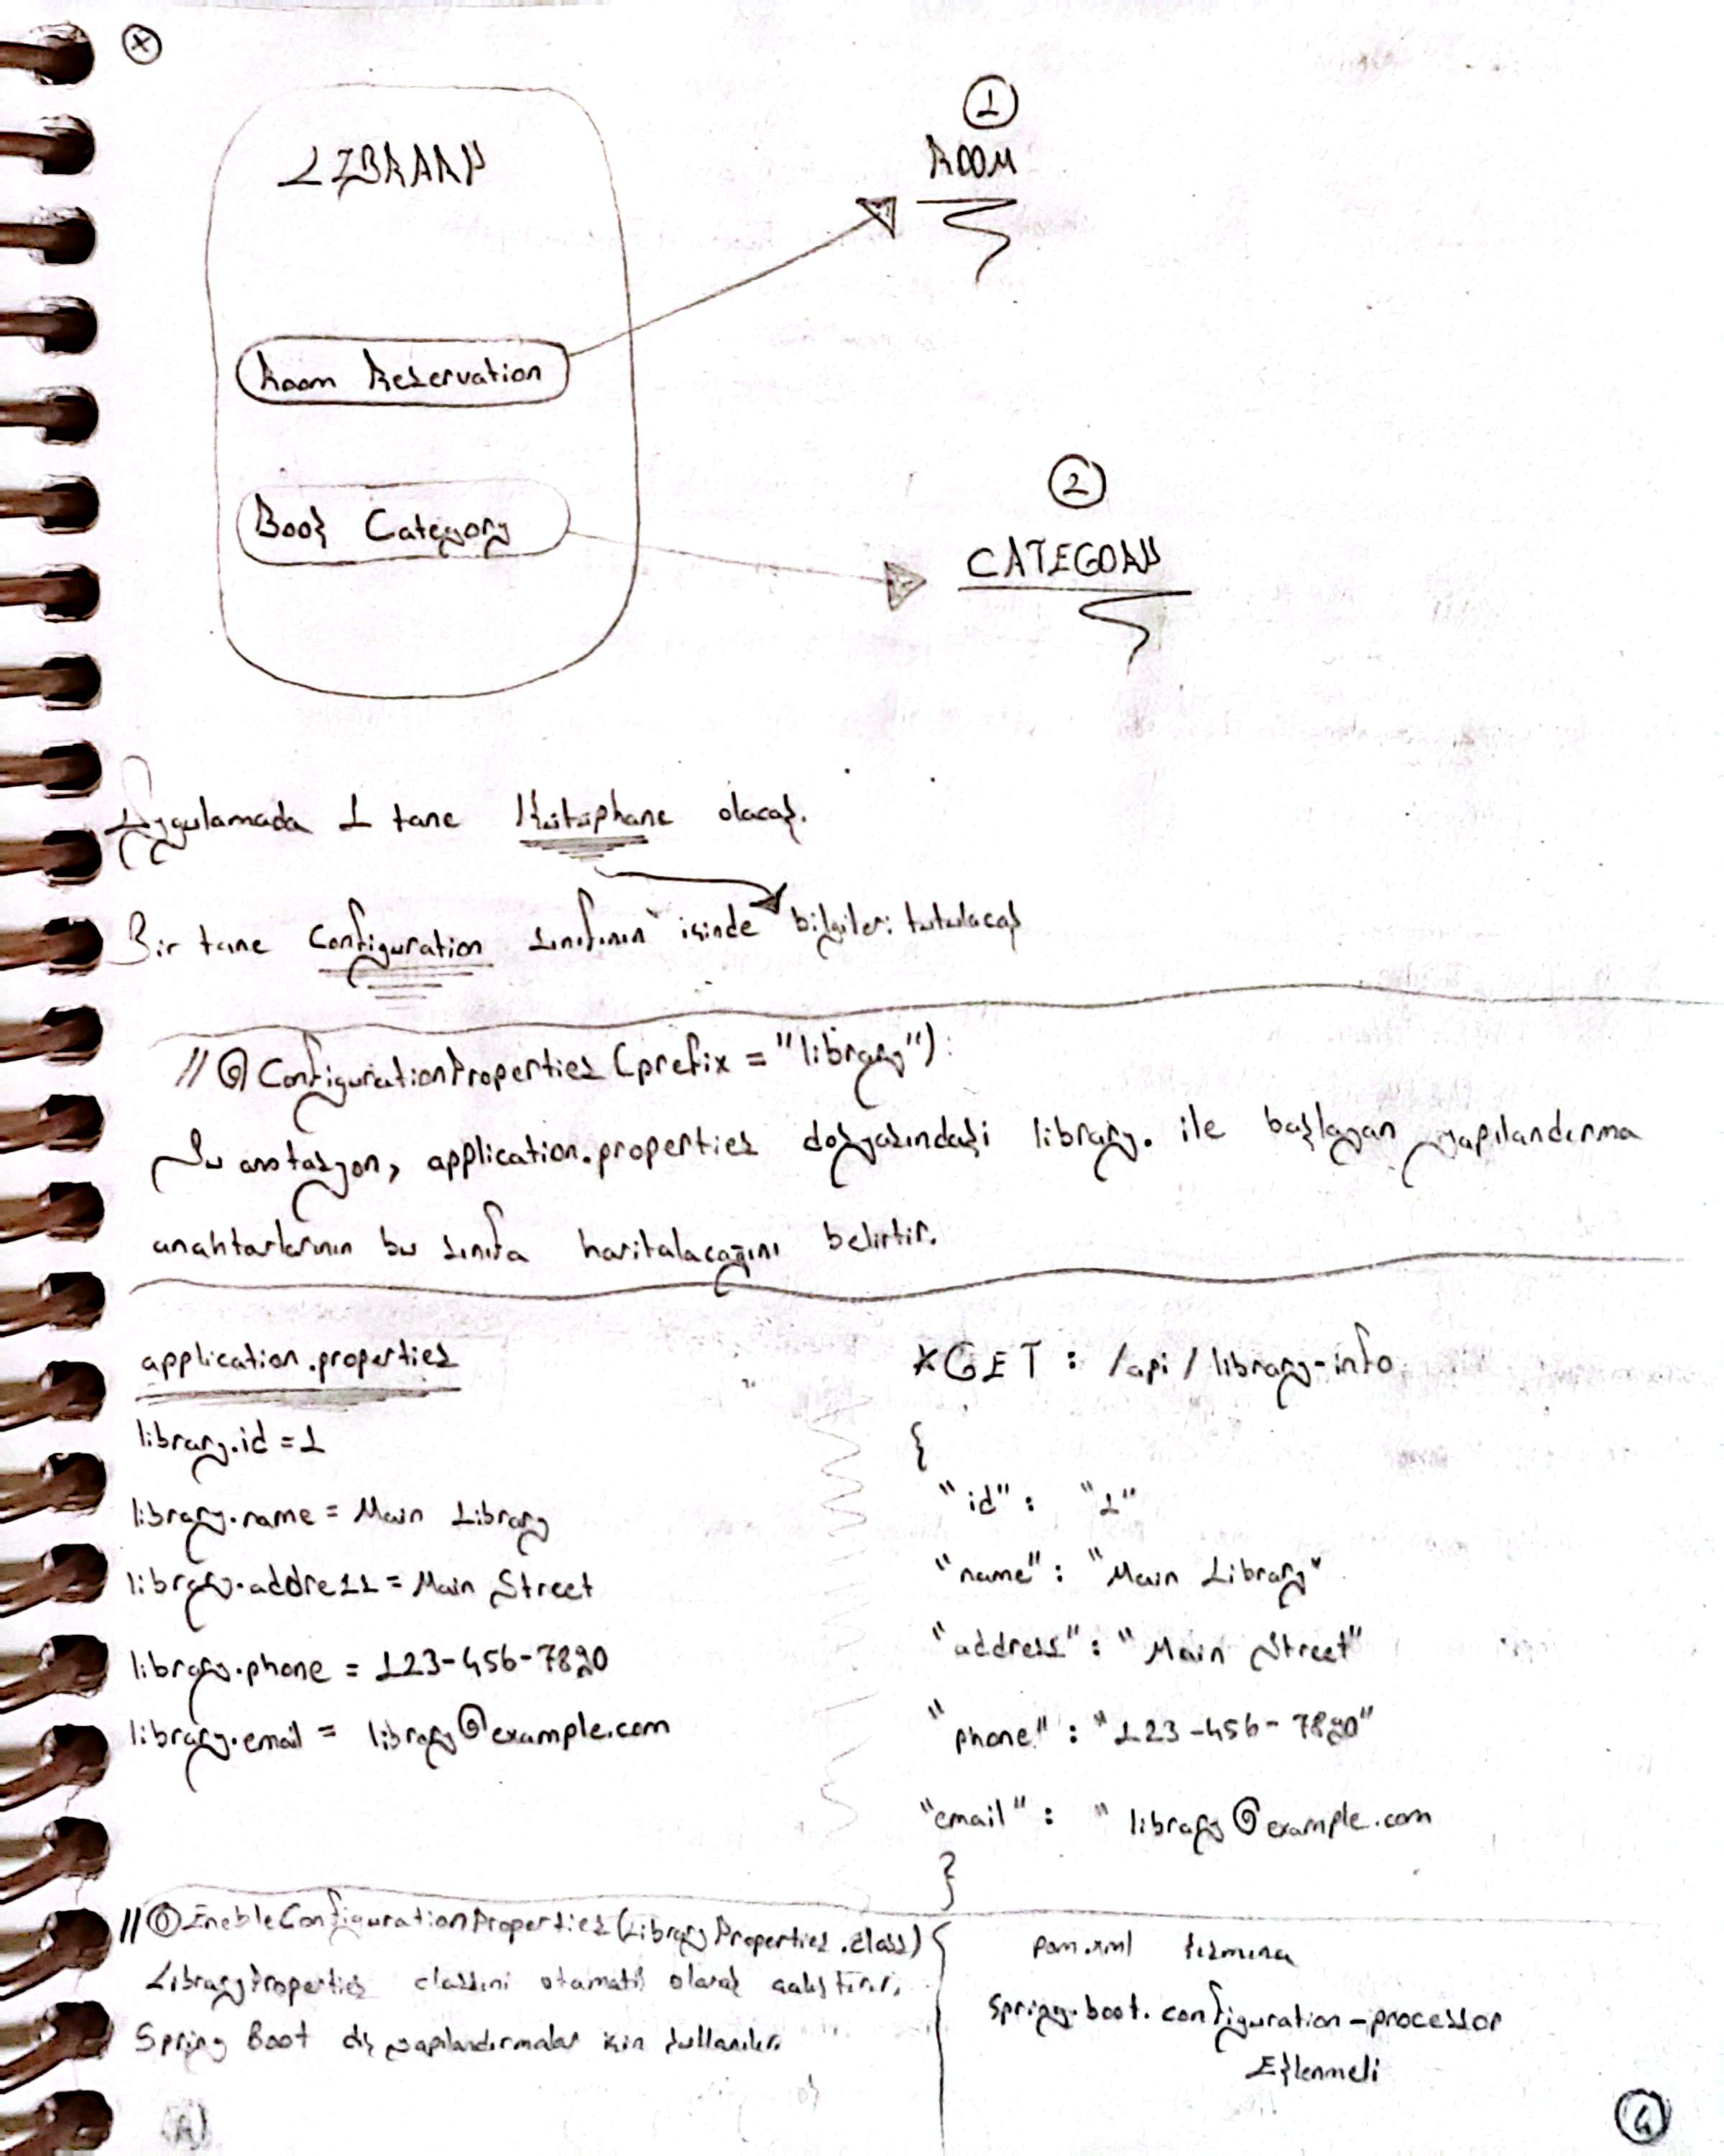 LIBRARY
1
ROOM
Room Reservation
2
Book Category
CATEGORY
Uygulamada 1 tane Kütüphane olacak.
Bir tane Configuration sınıfının içinde bilgileri tutulacak
// @ConfigurationProperties (prefix = "library"):
Bu anotasyon, application.properties dosyasındaki library. ile başlayan yapılandırma
anahtarlarının bu sınıfa haritalacağını belirtir.
application.properties
library.id = 1
library.name = Main Library
library.address = Main Street
library.phone = 123-456-7890
library.email = library@example.com
*GET : /api/library-info
{
"id" : "1"
"name" : "Main Library"
"address" : "Main Street"
"phone" : "123-456-7890"
"email" : "library@example.com
}
// @EnebleConfigurationProperties (LibraryProperties.class)
LibraryProperties classını otamatik olarak çalıştırır.
Spring Boot dış yapılandırmalar için kullanılır.
pom.xml kısmına
spring.boot.configuration-processor
Eklenmeli
4